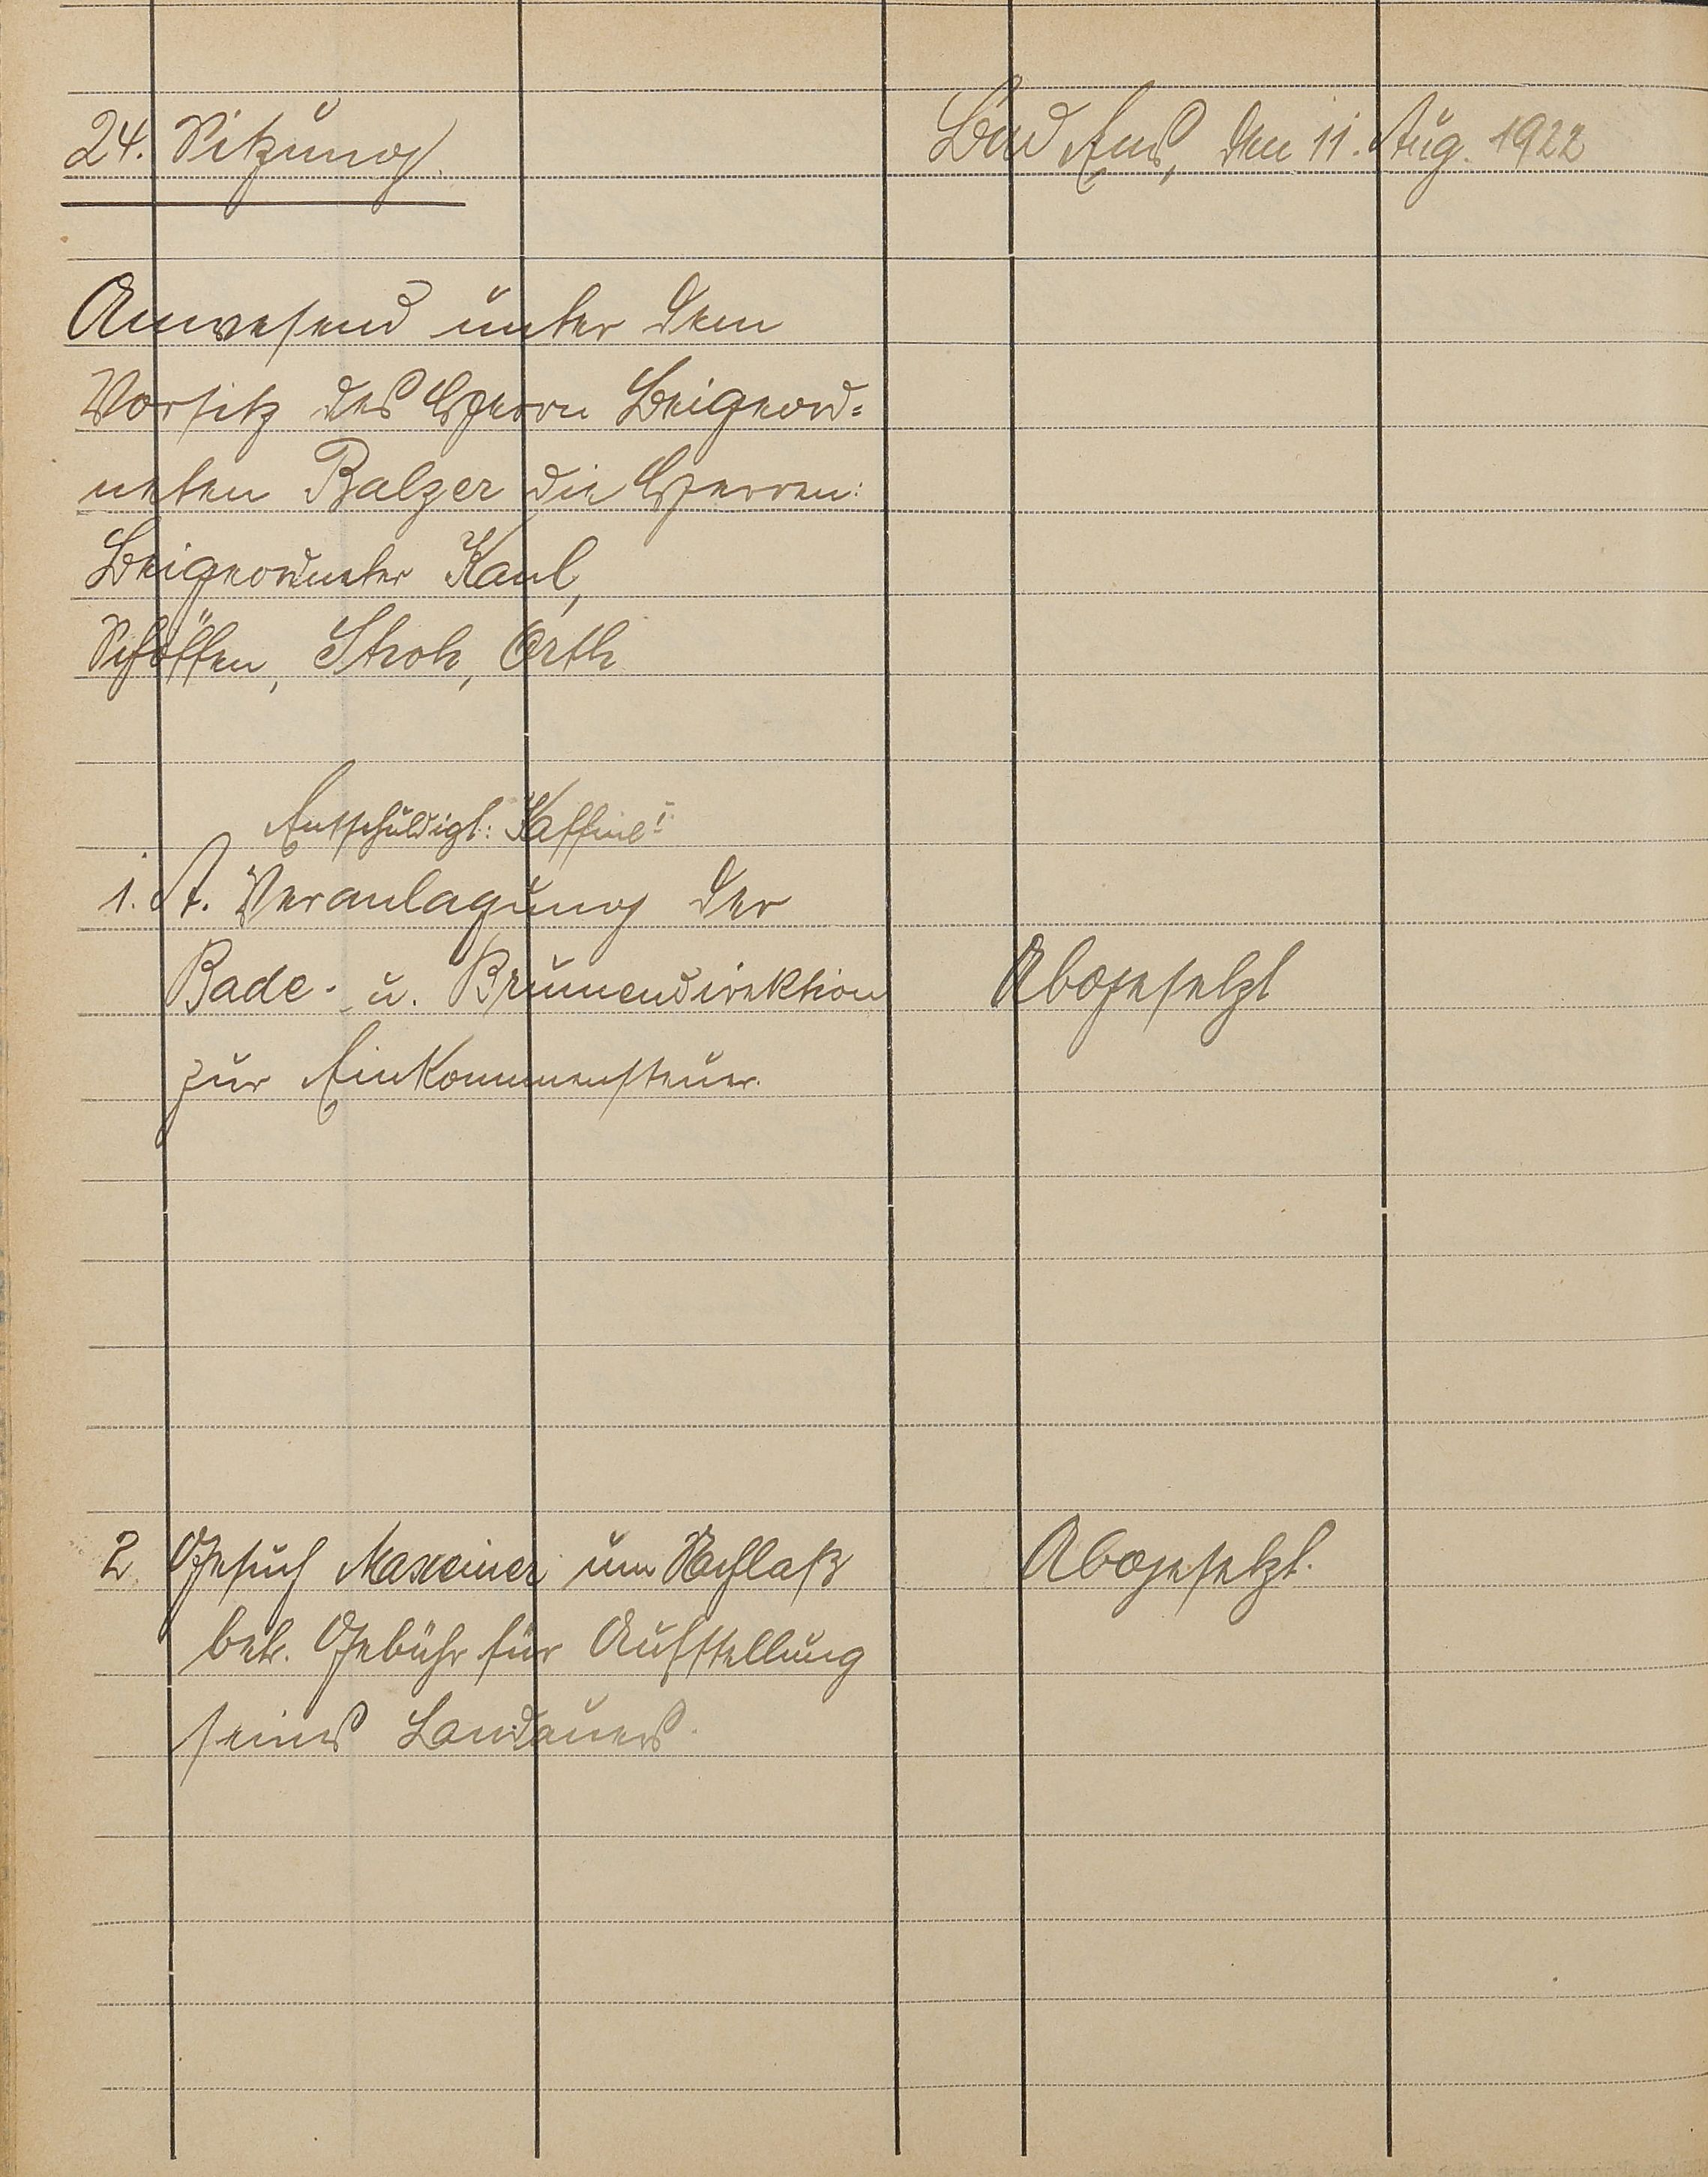 24. Sitzung.
Bad Ems, den 11. Aug. 1922
Anwesend unter dem
Vorsitz des Herrn Beigeord=
neten Balzer die Herren:
Beigeordneter Kaul,
Schöffen, Stroh, Orth
Entschuldigt:
1. A. Veranlagung der
Bade- u. Brunnendirektion
zur Einkommensteuer.
Abgesetzt
2 Gesuch Maxeiner um Nachlaß
betr. Gebühr für Aufstellung
seines Landauers.
Abgesetzt.